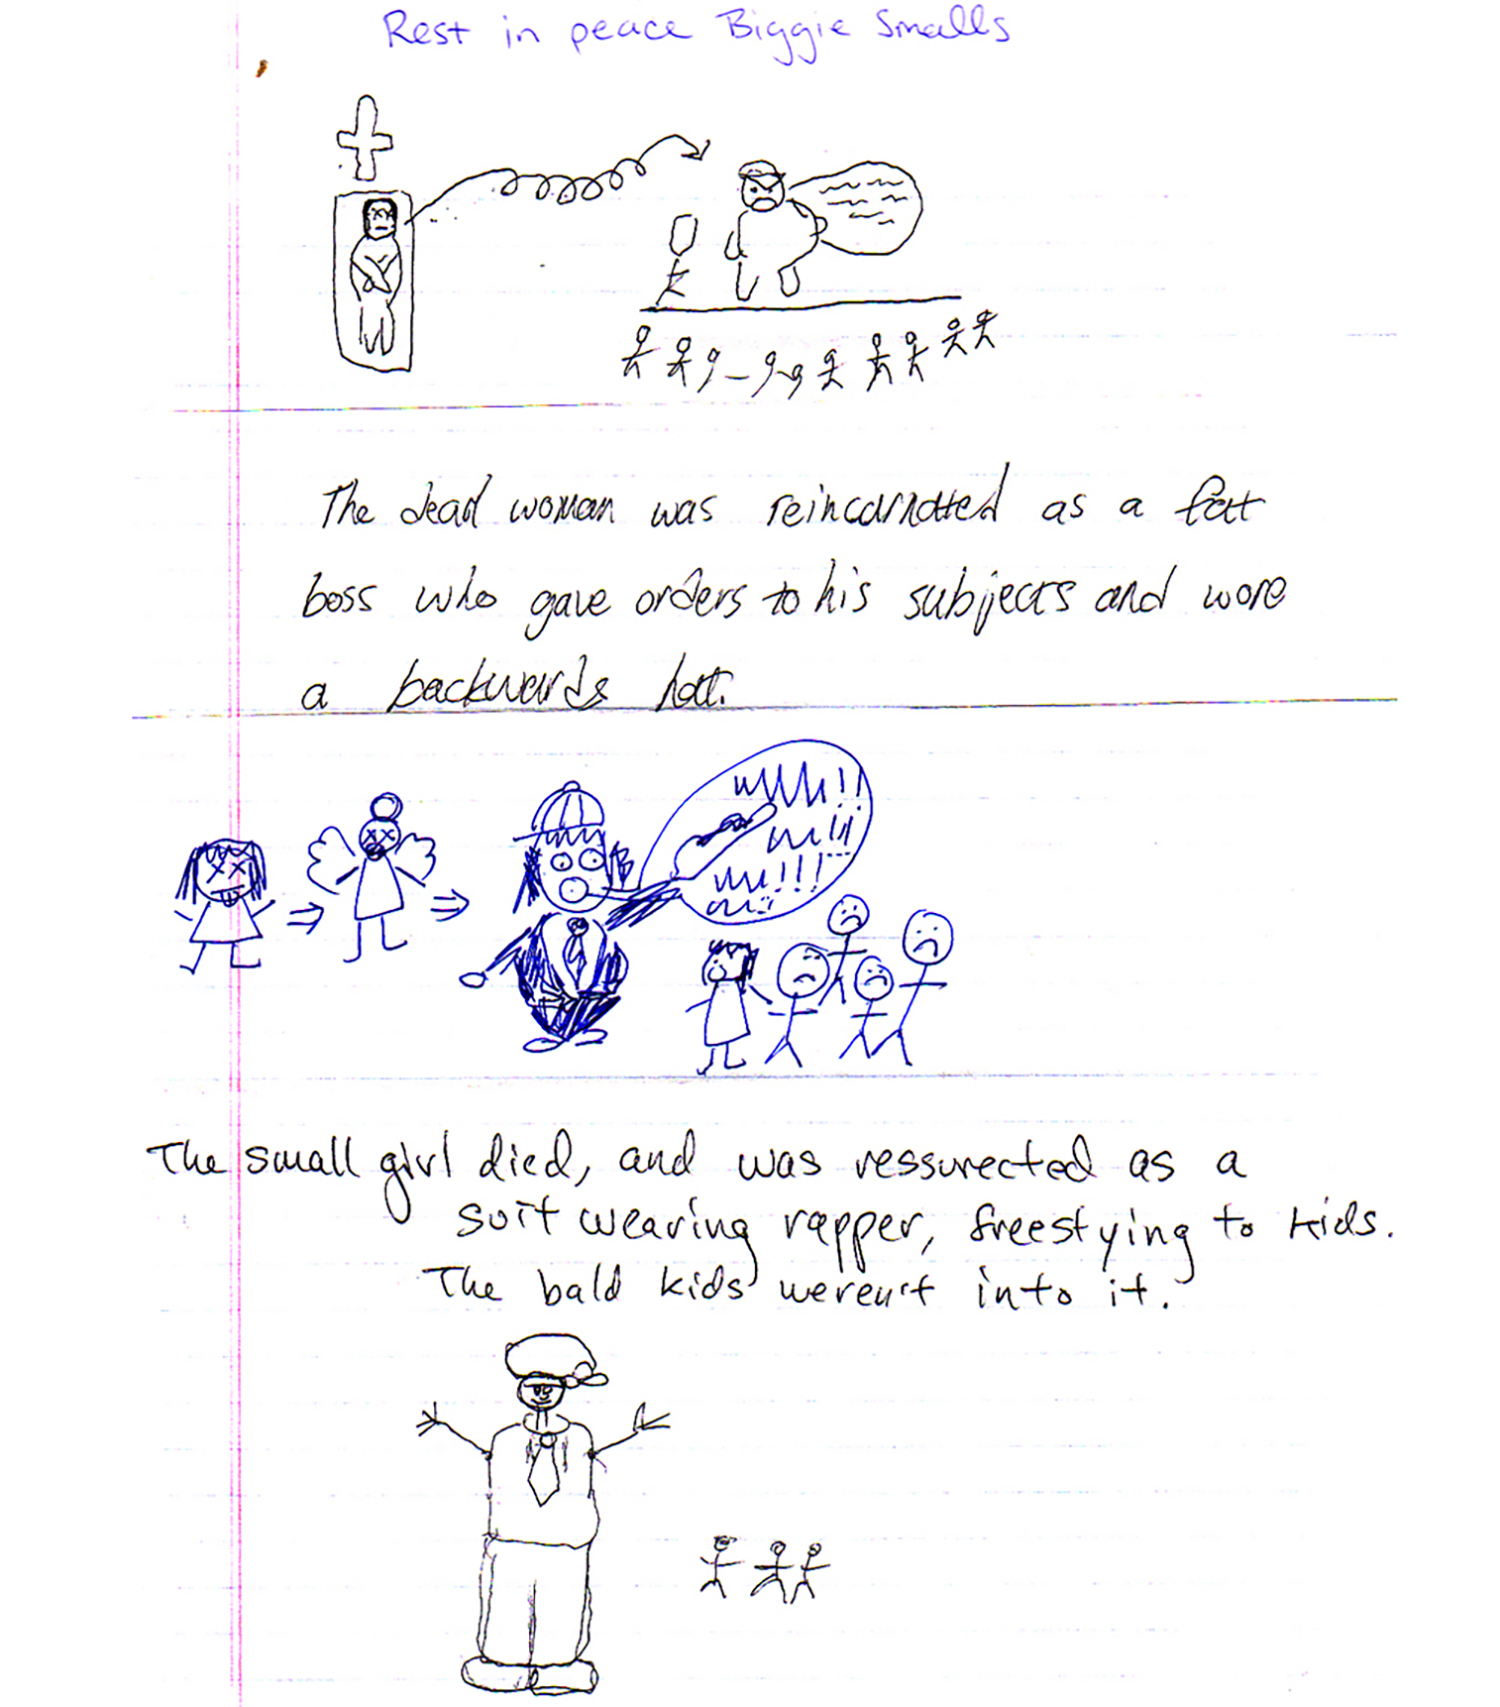 Rest in peace Biggie Smalls
The dead woman was reincarnatted as a fat
boss who gave orders to his subjects and wore
a backwards hat.
The small girl died, and was ressurected as a
suit wearing rapper, freestying to kids.
The bald kids weren't into it.